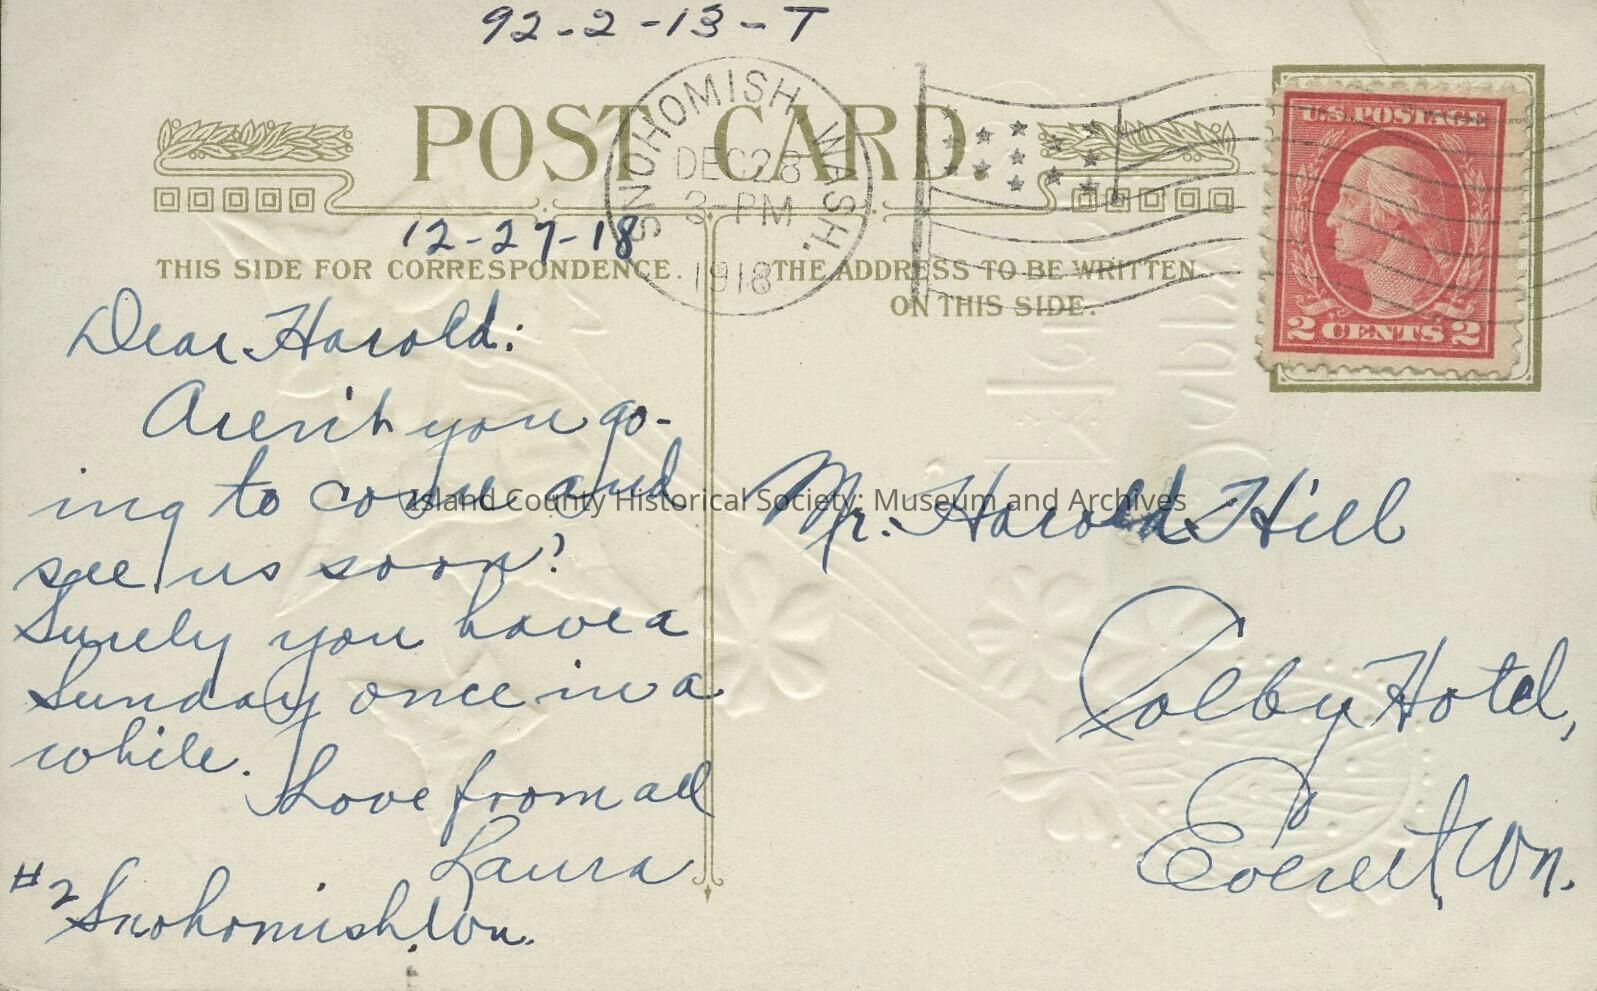 92-2-13-T
POST CARD.
SNOHOMISH, WASH.
DEC 28
3-PM
1918
U.S. POSTAGE
2 CENTS 2
12-27-18
THIS SIDE FOR CORRESPONDENCE.
THE ADDRESS TO BE WRITTEN
ON THIS SIDE.
Dear Harold:
Aren't you go-
ing to come and
see us soon?
Surely you have a
Sunday once in a
while.
Love from all
Laura
#2
Snohomish, Wn.
Mr. Harold Hill
Colby Hotel,
Everett, Wn.
Island County Historical Society: Museum and Archives